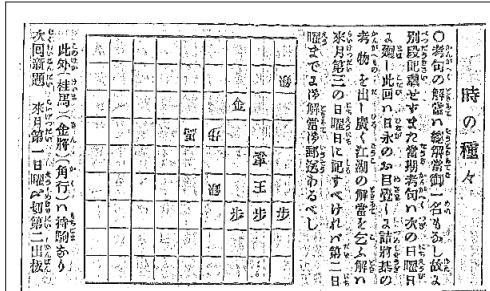 時の種々
○考句の解當は總解當御一名もなし故よ
別段記載せずまた當期考句は次の日曜日
よ廻し此回は日永のお目覺しよ詰將棊の
考へ物を出し廣く江湖の解當を乞ふ解は
來月第三の日曜日よ記すべければ第二日
曜までよ御解當御郵送あるべし
銀
金
歩
馬
龍
王
銀
歩
歩
歩
此外(桂馬)(金將)(角行)は持駒なり
次回新題 來月第一日曜〆切第二出板